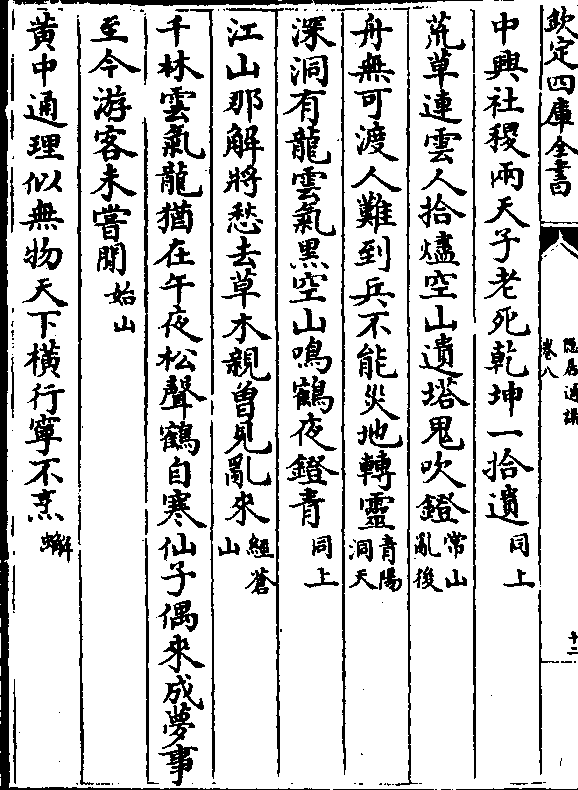 欽定四庫全書
隠居通議
卷八
十二
中興社稷兩天子老死乾坤一拾遺同上
荒草連雲人拾燼空山遺塔鬼吹鐙常山亂後
舟無可渡人難到兵不能災地轉靈青陽洞天
深洞有龍雲氣黑空山鳴鶴夜鐙青同上
江山那解將愁去草木親曾見亂來經蒼山
千林雲氣龍猶在午夜松聲鶴自寒仙子偶來成夢事
至今游客未嘗聞始山
黄中通理似無物天下橫行寧不烹蟹